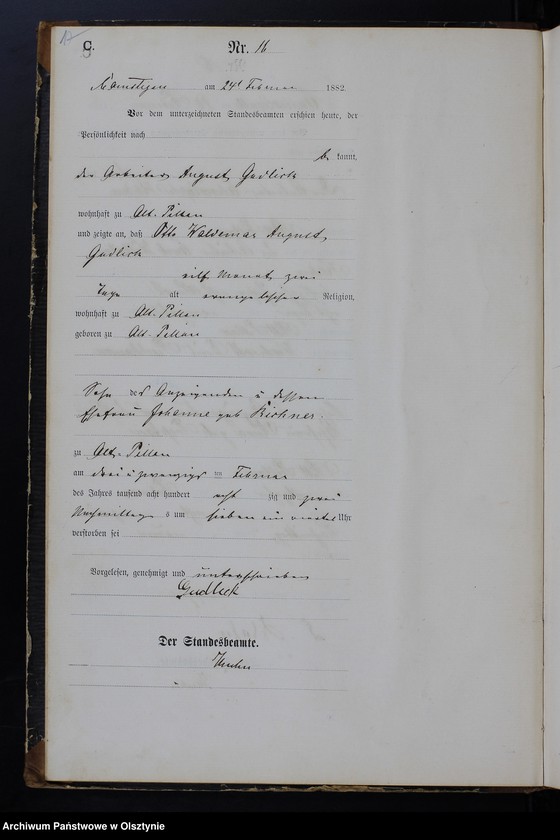 17
C.
Nr. 16
am 24t Februar 1882
Vor dem unterzeichneten Standesbeamten erschien heute, der
Persönlichkeit nach
be kannt,
der Arbeiter August Gudlick
wohnhaft zu Alt-Pillau
und zeigte an, daß Otto Waldemar August
Gudlick
eilf Monat zwei
Tage alt evangelischer Religion,
wohnhaft zu Alt-Pillau
geboren zu Alt-Pillau
Sohn des Anzeigenden u dessen
Ehefrau Johanne geb
zu Alt-Pillau
am drei u zwanzigs ten Februar
des Jahres tausend acht hundert acht zig und zwei
Nachmittag s um sieben ein viertel Uhr
verstorben sei
Vorgelesen, genehmigt und unterschrieben
Gudlick
Der Standesbeamte.
Archiwum Państwowe w Olsztynie